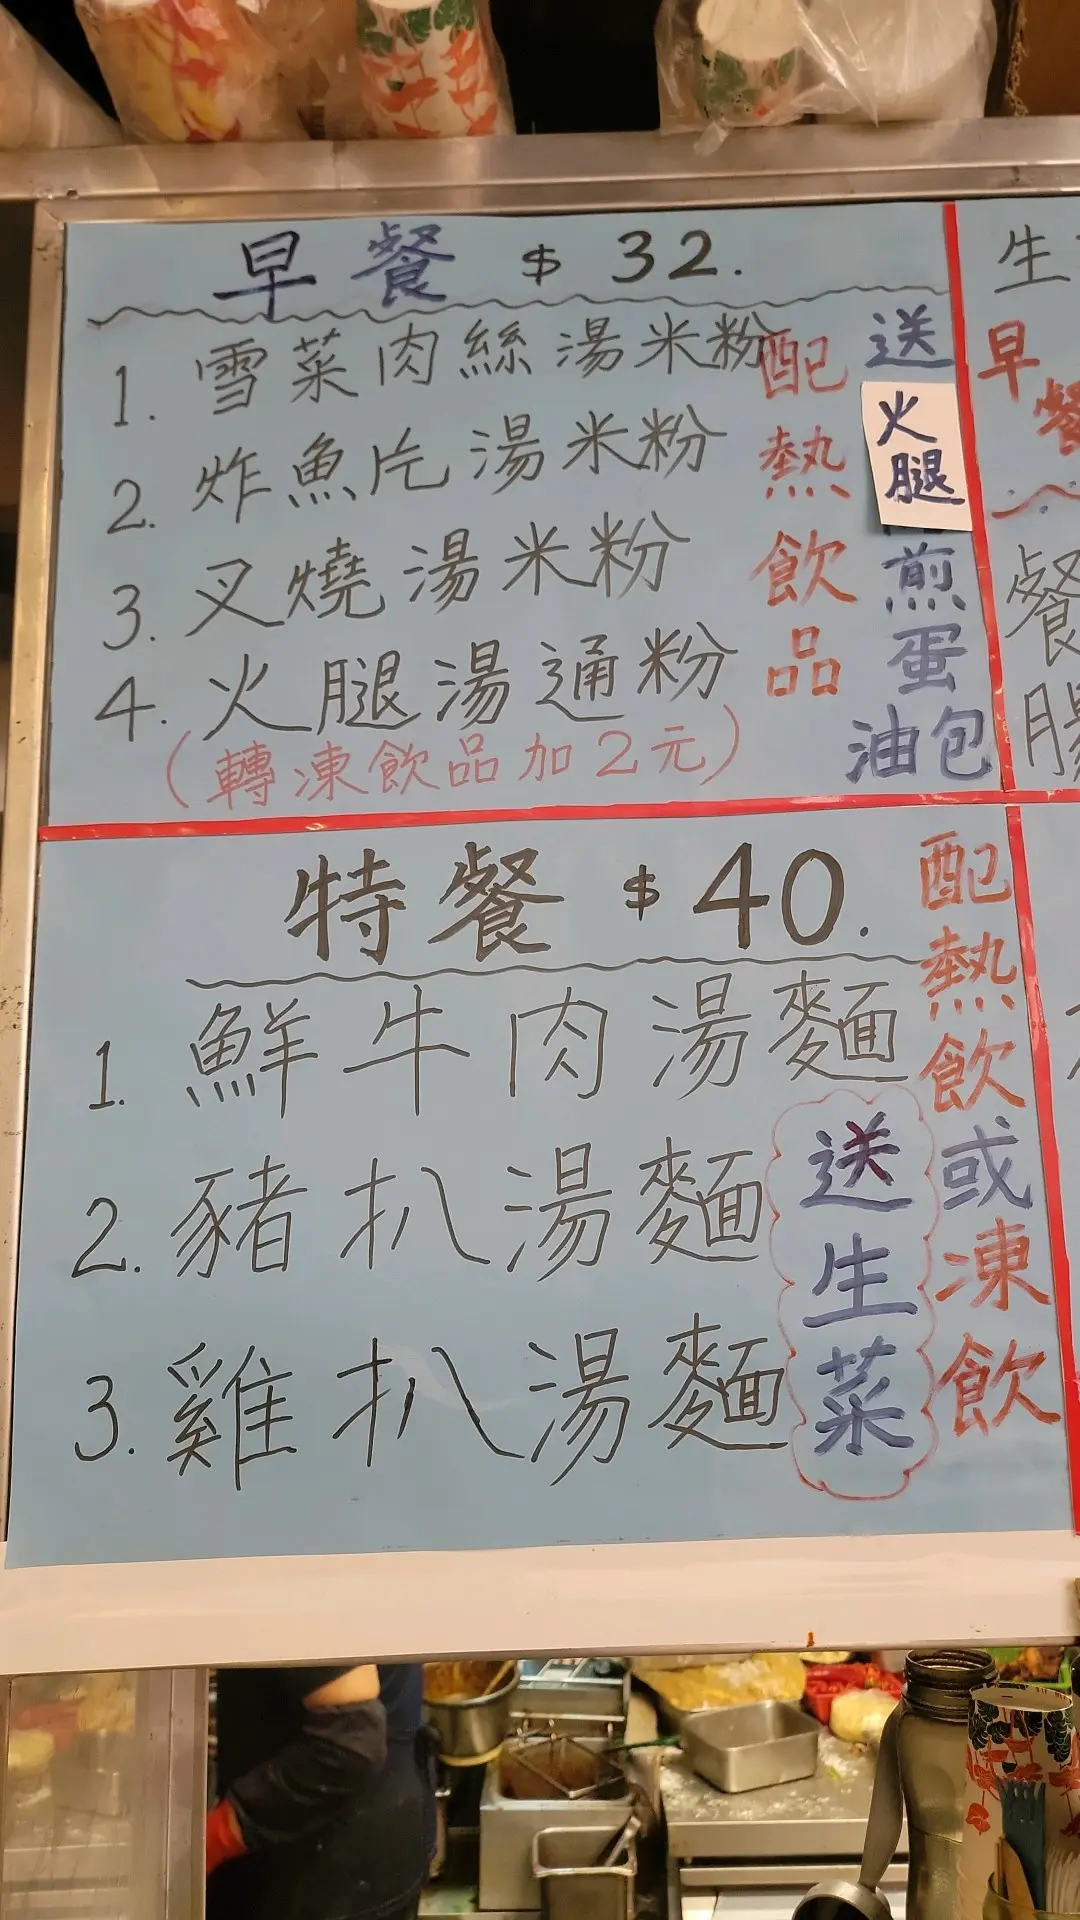 早餐 $32.
1. 雪菜肉絲湯米粉
2. 炸魚片湯米粉
3. 叉燒湯米粉
4. 火腿湯通粉
(轉凍飲品加2元)
配熱飲品
送火腿煎蛋
油包
特餐 $40.
1. 鮮牛肉湯麵
2. 豬扒湯麵
3. 雞扒湯麵
送生菜
配熱飲或凍飲
生
早餐
餐
腸